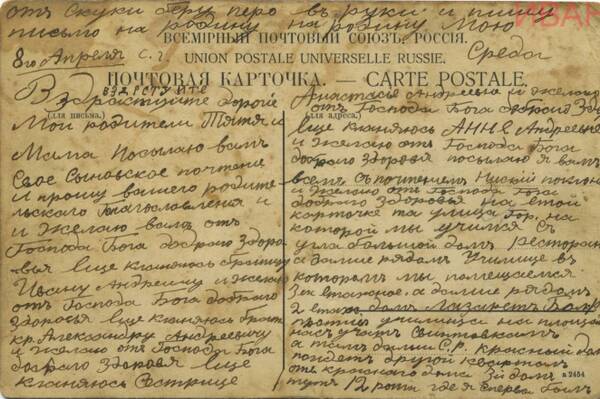 отъ скуки беру перо въ руки и пишу
письмо на родину на родину Мою
ВСЕМІРНЫЙ ПОЧТОВЫЙ СОЮЗЪ. РОССІЯ.
8го Апреля с. г.
UNION POSTALE UNIVERSELLE RUSSIE.
Среда
ПОЧТОВАЯ КАРТОЧКА. — CARTE POSTALE.
ВЗДРСТУЙТЕ
Вздраствуйте дорогіе
(для письма.)
Мои родители Тятя и
Мама Посылаю вамъ
Свое Сыновское почтение
И прошу вашего родите
льского Благославления и
и желаю вамъ отъ
Господа Бога добраго Здоро
вья Еще кланяюсь братцу
Андреичу и желаю
отъ Господа Бога добраго
Здоровья Еще кланяюсь брату
кр. Александру Андреевичу
и желаю отъ Господа Бога
добраго Здоровья Еще
кланяюсь Сестрице
Анастасье Андреевне и желаю
отъ Господа Бога добраго Здо
(для адреса.)
Еще кланяюсь АННЕ Андреевне
и желаю отъ Господа Бога
добраго Здоровья посылаю я вамъ
всем с почтениемъ Низкий поклонъ
и желаю отъ Господа Бога
добраго Здоровья на етой
карточке та улица Гор. на
которой мы учимся съ
угла большой домъ Ресторанъ
а далше рядомъ Училище въ
которамъ мы помещаемся
а далше рядомъ
2 етаж. домъ Лазаретъ
училища на площади
насъ учатъ
а тамъ далше С.Р. Красный домъ
пойдетъ другой кварталъ
отъ краснаго дома 3й домъ
тутъ 12 рота где я сперва былъ
в 2454
ИВАН